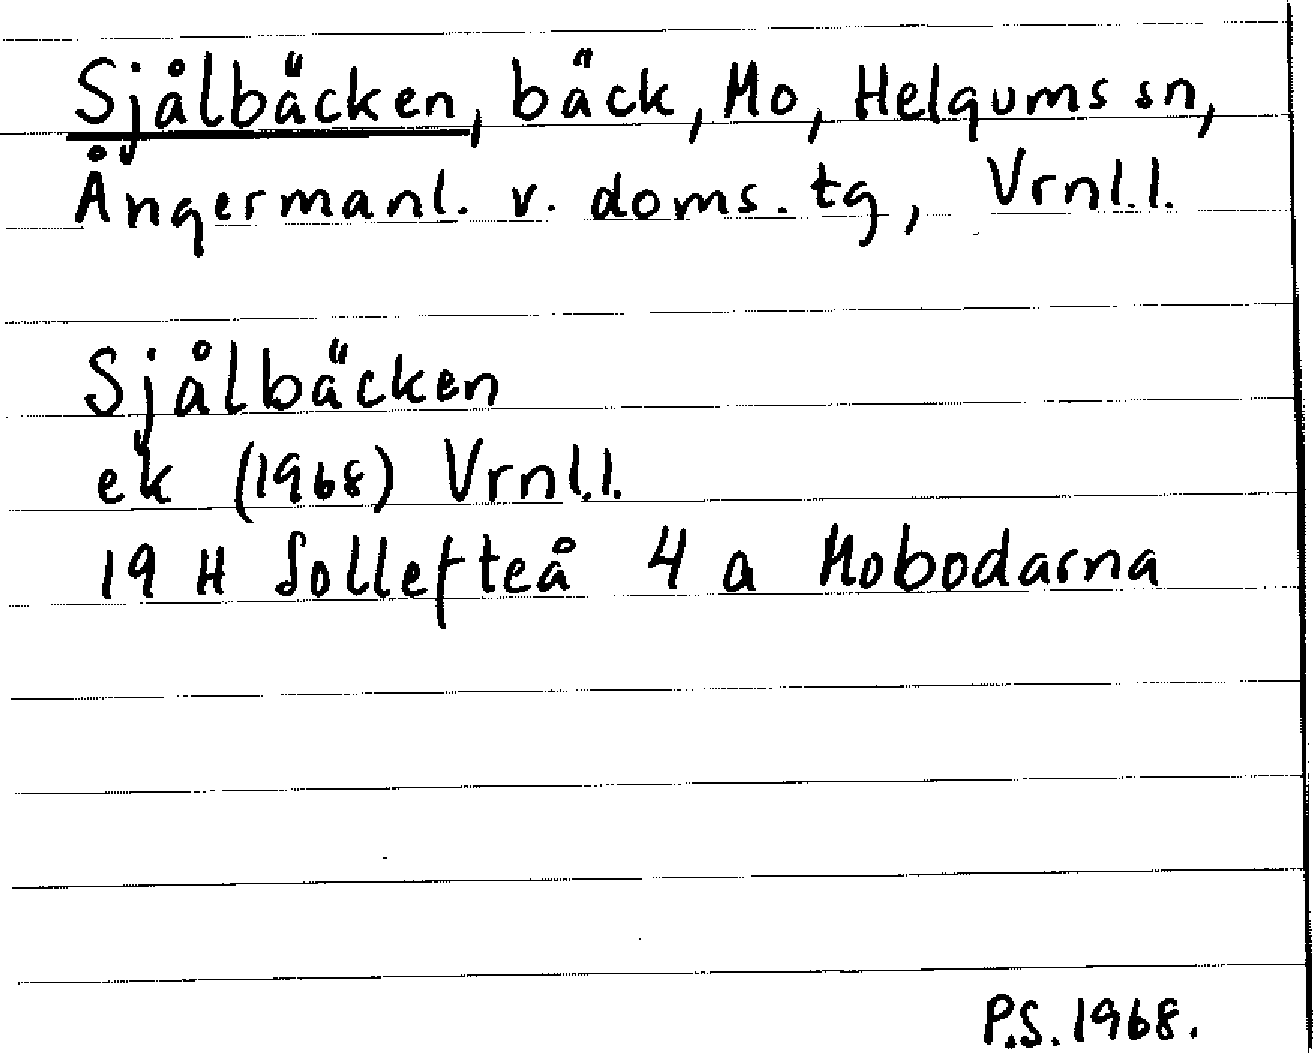 Sjålbäcken, bäck, Mo, Helgums sn,
Ångermanl. v. doms. tg, Vrnl.l.
Sjålbäcken
ek (1968) Vrnl.l.
19 H Sollefteå 4 a Mobodarna
P.S. 1968.